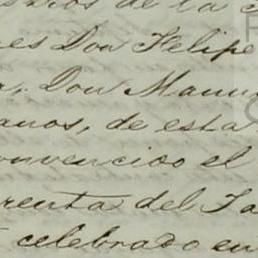 stros de la C
res Don Felipe
a. Don Manu
anos, de esta
onvencido el
renta del Ta
celebrado en